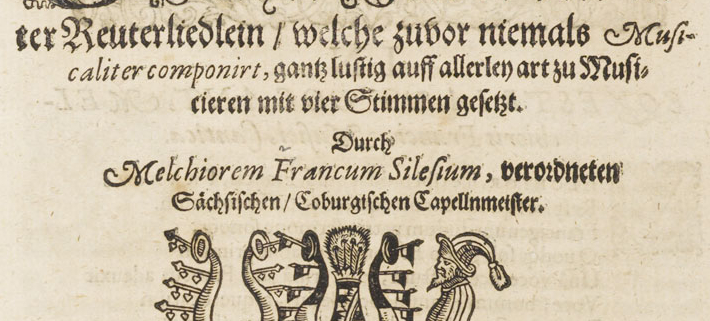 ter Reuterliedlein / welche zuvor niemals Musi-
caliter componirt, gantz lustig auff allerley art zu Musi-
cieren mit vier Stimmen gesetzt.
Durch
Melchiorem Francum Silesium, verordneten
Sächsischen / Coburgischen Capellnmeister.